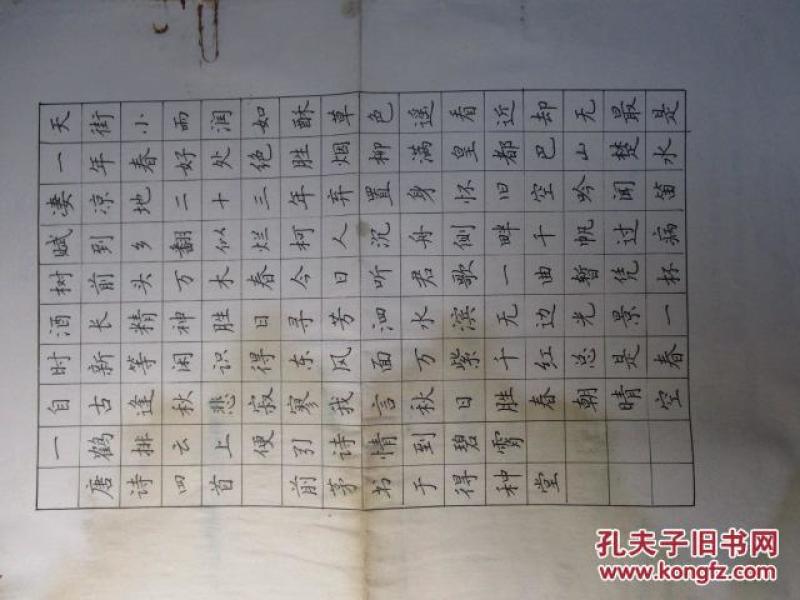 天街小雨润如酥草色遥看近却无最是
一年春好处绝胜烟柳满皇都巴山楚水
凄凉地二十三年弃置身怀旧空吟闻笛
赋到乡翻似烂柯人沉舟侧畔千帆过病
树前头万木春今日听君歌一曲暂凭杯
酒长精神胜日寻芳泗水滨无边光景一
时新等闲识得东风面万紫千红总是春
自古逢秋悲寂寥我言秋日胜春朝晴空
一鹤排云上便引诗情到碧霄
唐诗四首 前茅书于得种堂
孔夫子旧书网
www.kongfz.com